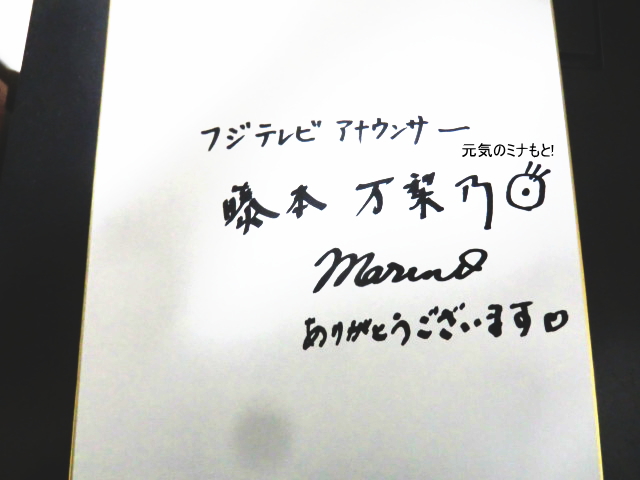 フジテレビ アナウンサー
元気のミナもと!
藤本 万梨乃
Marino
ありがとうございます♡